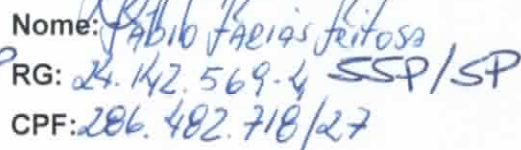 Nome: Fábio Farias Feitosa
RG: 24.142.569-4 SSP/SP
CPF: 286.482.718/27